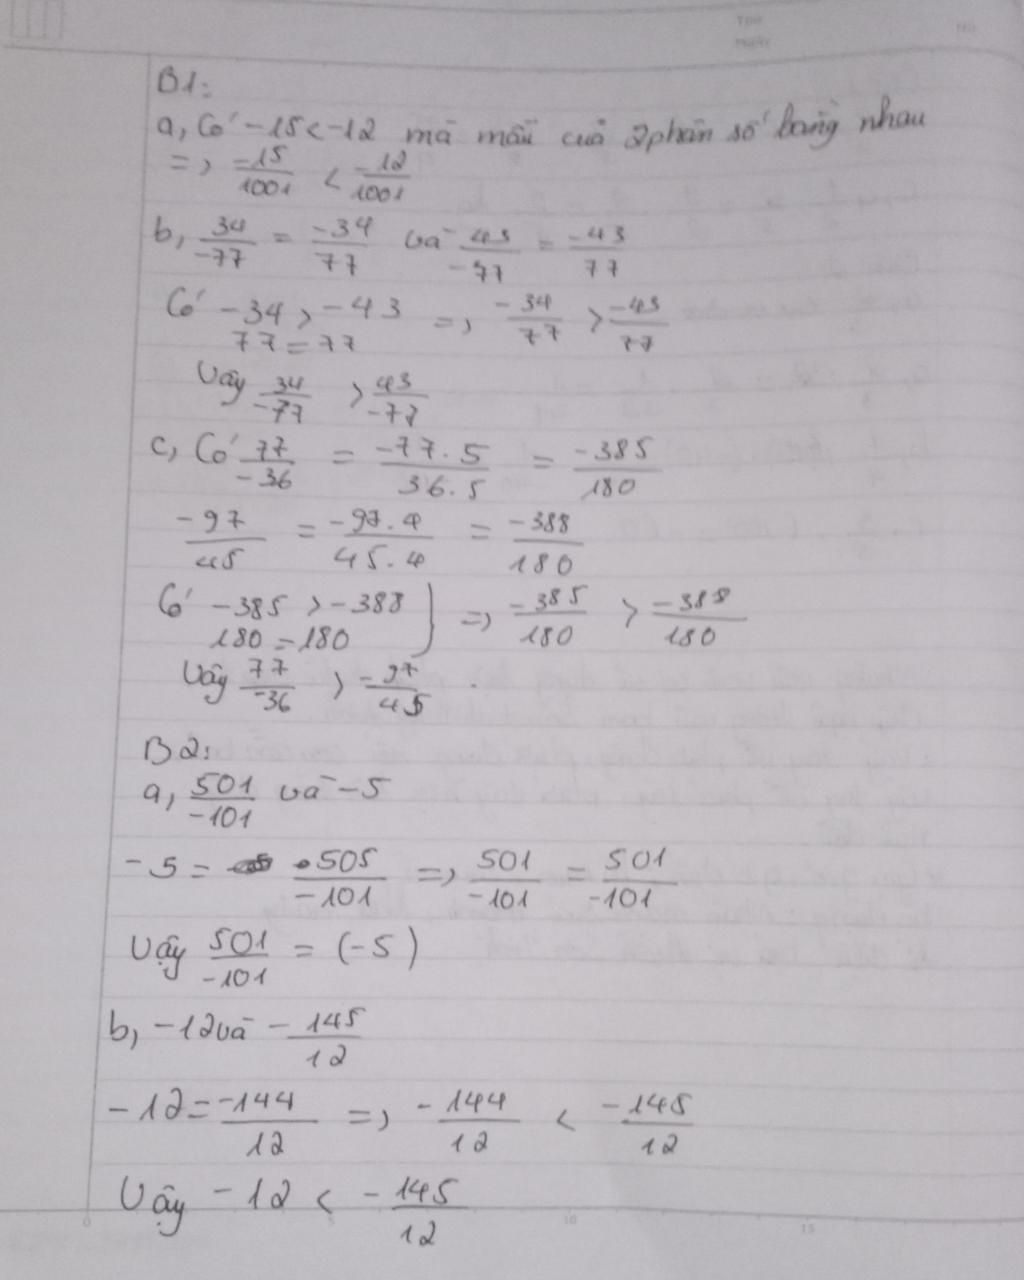 B1:
a, Có -15 < -12 mà mẫu của 2 phân số bằng nhau
=> -15/1001 < -12/1001
b, 34/-77 = -34/77 và 43/-77 = -43/77
Có -34 > -43 => -34/77 > -43/77
77 = 77
Vậy 34/-77 > 43/-77
c, Có 77/-36 = -77.5/36.5 = -385/180
-97/45 = -97.4/45.4 = -388/180
Có -385 > -388 } => -385/180 > -388/180
180 = 180
Vậy 77/-36 > -97/45
B2:
a, 501/-101 và -5
-5 = 505/-101 => 501/-101 = 501/-101
Vậy 501/-101 = (-5)
b, -12 và -145/12
-12 = -144/12 => -144/12 < -145/12
Vậy -12 < -145/12
0 5 10 15